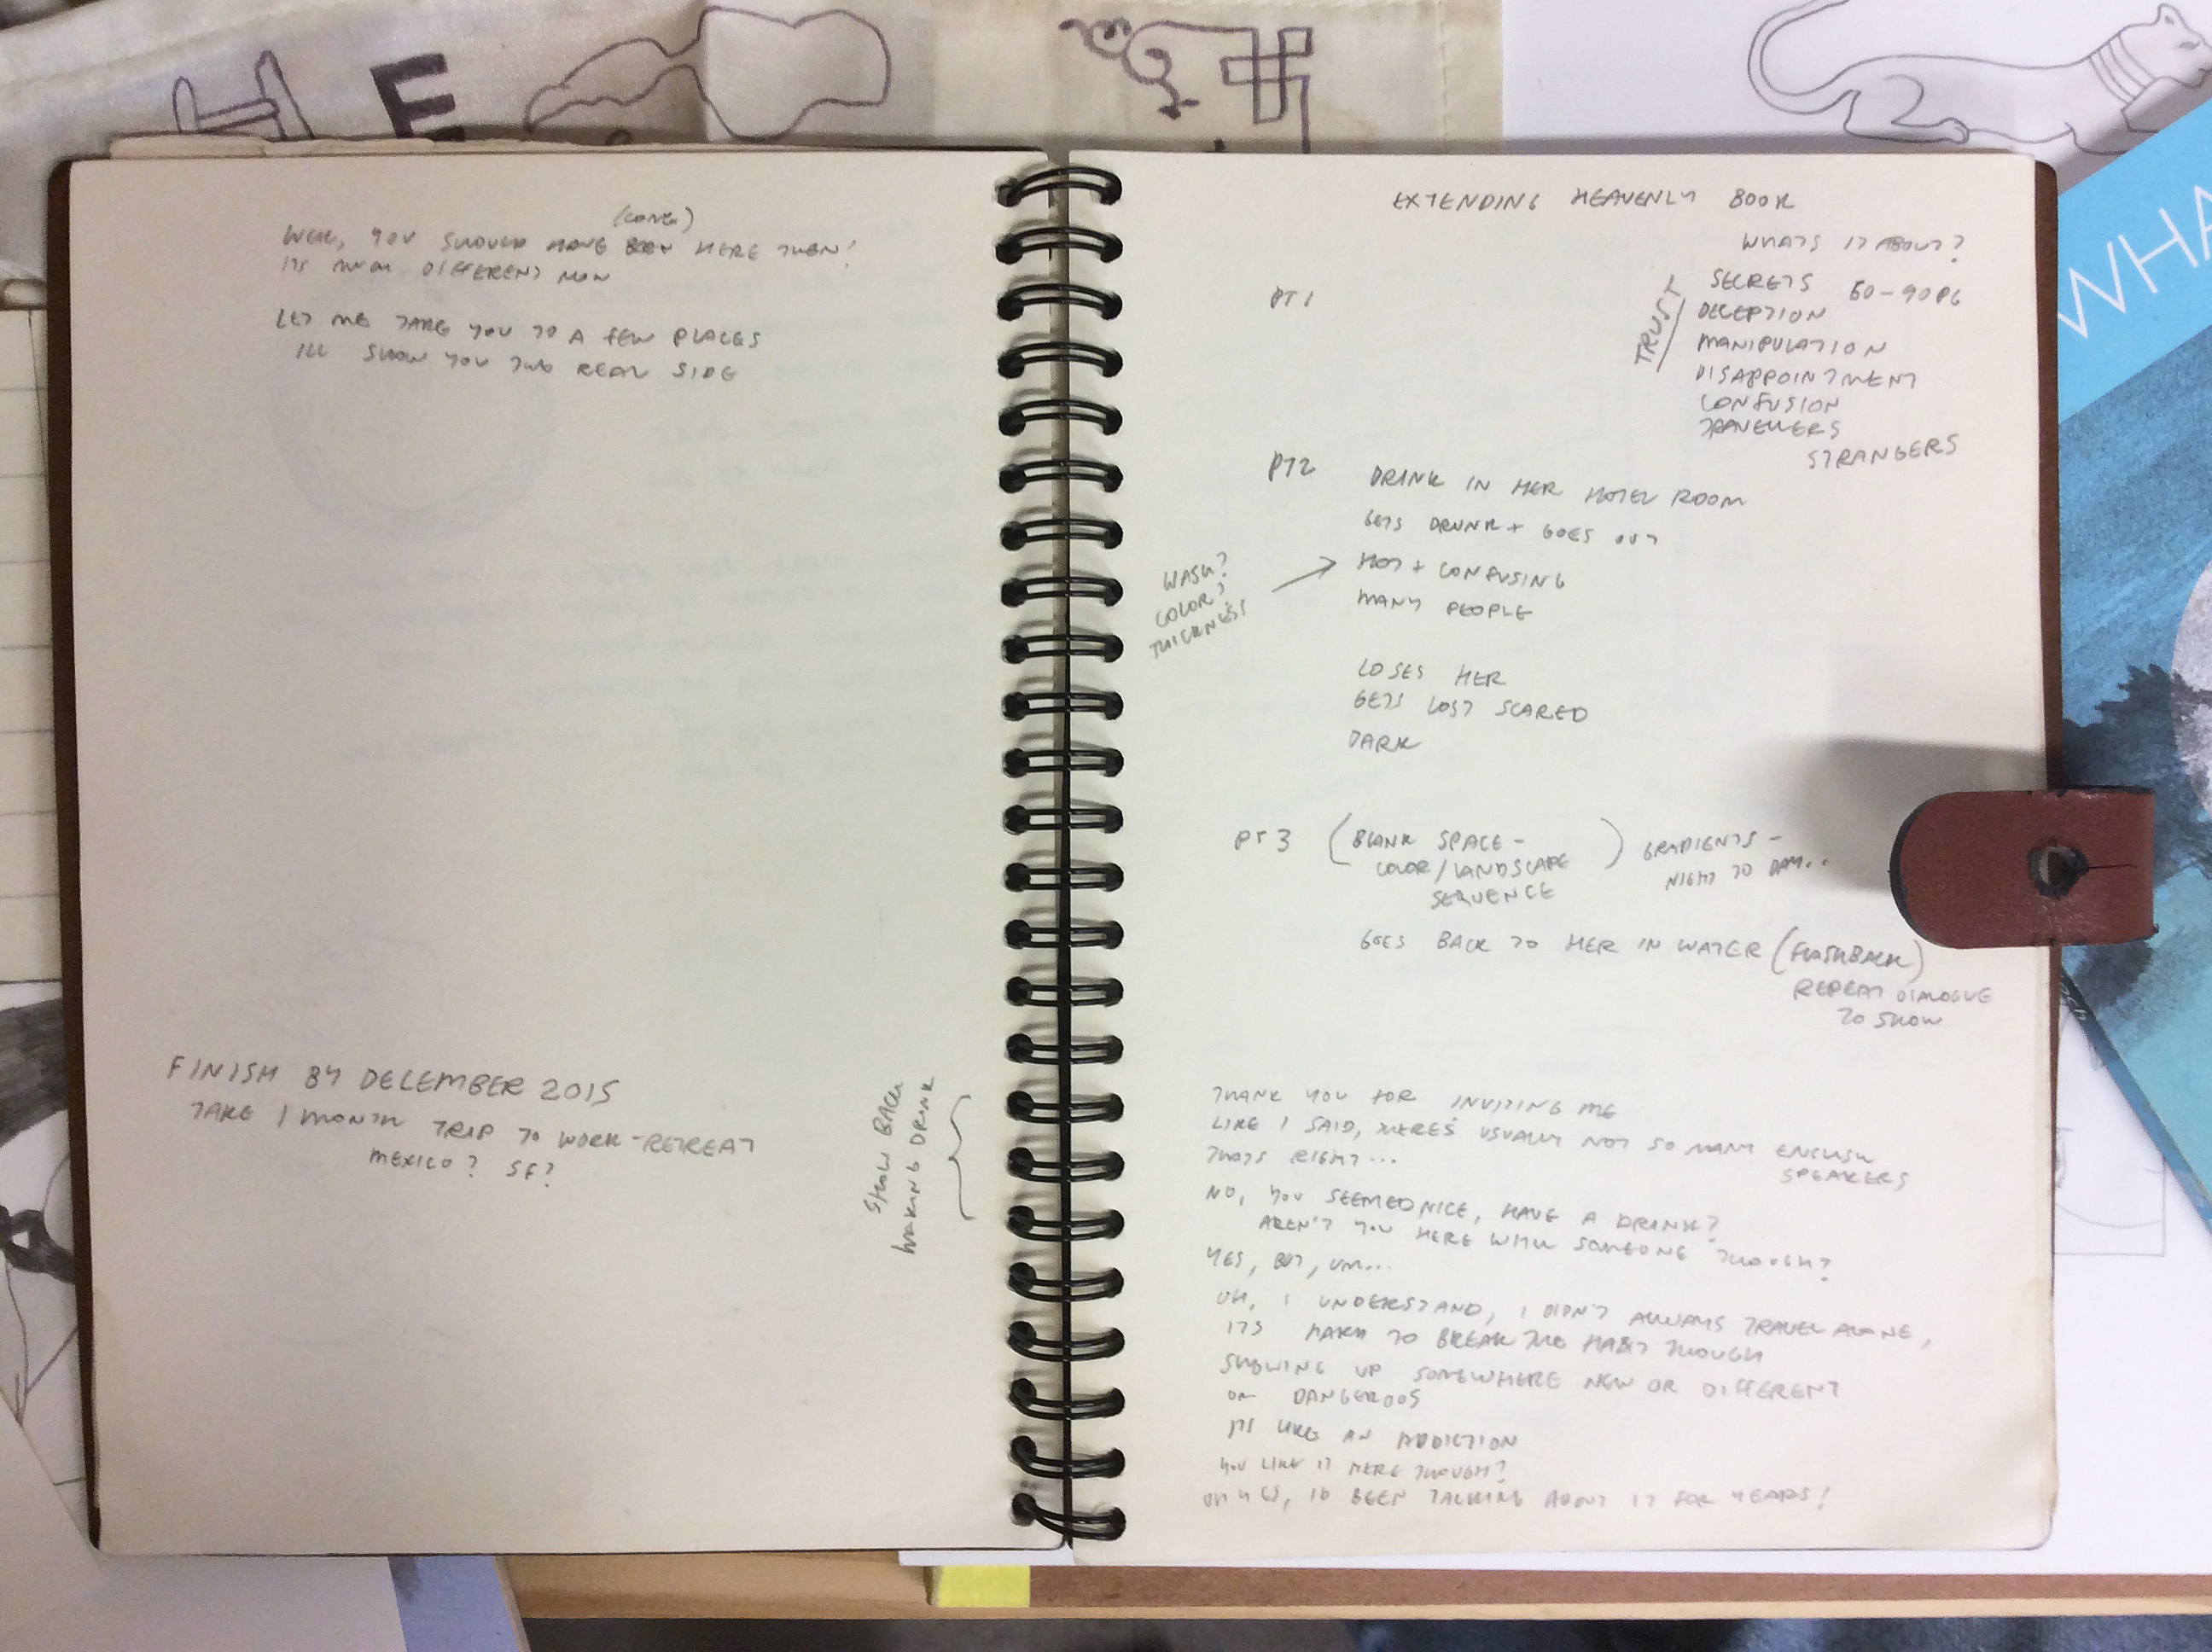 HE
WHA
(COME)
WELL, YOU SHOULD HAVE BEEN HERE THEN!
ITS MUCH DIFFERENT NOW
LET ME TAKE YOU TO A FEW PLACES
ILL SHOW YOU THE REAL SIDE
FINISH BY DECEMBER 2015
TAKE 1 MONTH TRIP TO WORK-RETREAT
MEXICO? SF?
SHOW BACK
MAKING DRINK
EXTENDING HEAVENLY BOOK
WHATS IT ABOUT?
TRUST
SECRETS 60-90PG
DECEPTION
MANIPULATION
DISAPPOINTMENT
CONFUSION
TRAVELLERS
STRANGERS
PT 1
PT2 DRINK IN HER HOTEL ROOM
GETS DRUNK + GOES OUT
HOT + CONFUSING
MANY PEOPLE
WASH?
COLOR?
THICKNESS
LOSES HER
GETS LOST SCARED
DARK
PT 3 (BLANK SPACE -
COLOR/LANDSCAPE
SEQUENCE)
GRADIENTS -
NIGHT TO DAY..
GOES BACK TO HER IN WATER (FLASHBACK)
REPEAT DIALOGUE
TO SHOW
THANK YOU FOR INVITING ME
LIKE I SAID, THERES USUALLY NOT SO MANY ENGLISH
SPEAKERS
THATS RIGHT...
NO, YOU SEEMED NICE, HAVE A DRINK?
AREN'T YOU HERE WITH SOMEONE THOUGH?
YES, BUT, UM...
OH, I UNDERSTAND, I DIDN'T ALWAYS TRAVEL ALONE,
ITS HARD TO BREAK THE HABIT THOUGH
SHOWING UP SOMEWHERE NEW OR DIFFERENT
OR DANGEROUS
ITS LIKE AN ADDICTION
YOU LIKE IT HERE THOUGH?
OH YES, ID BEEN TALKING ABOUT IT FOR YEARS!